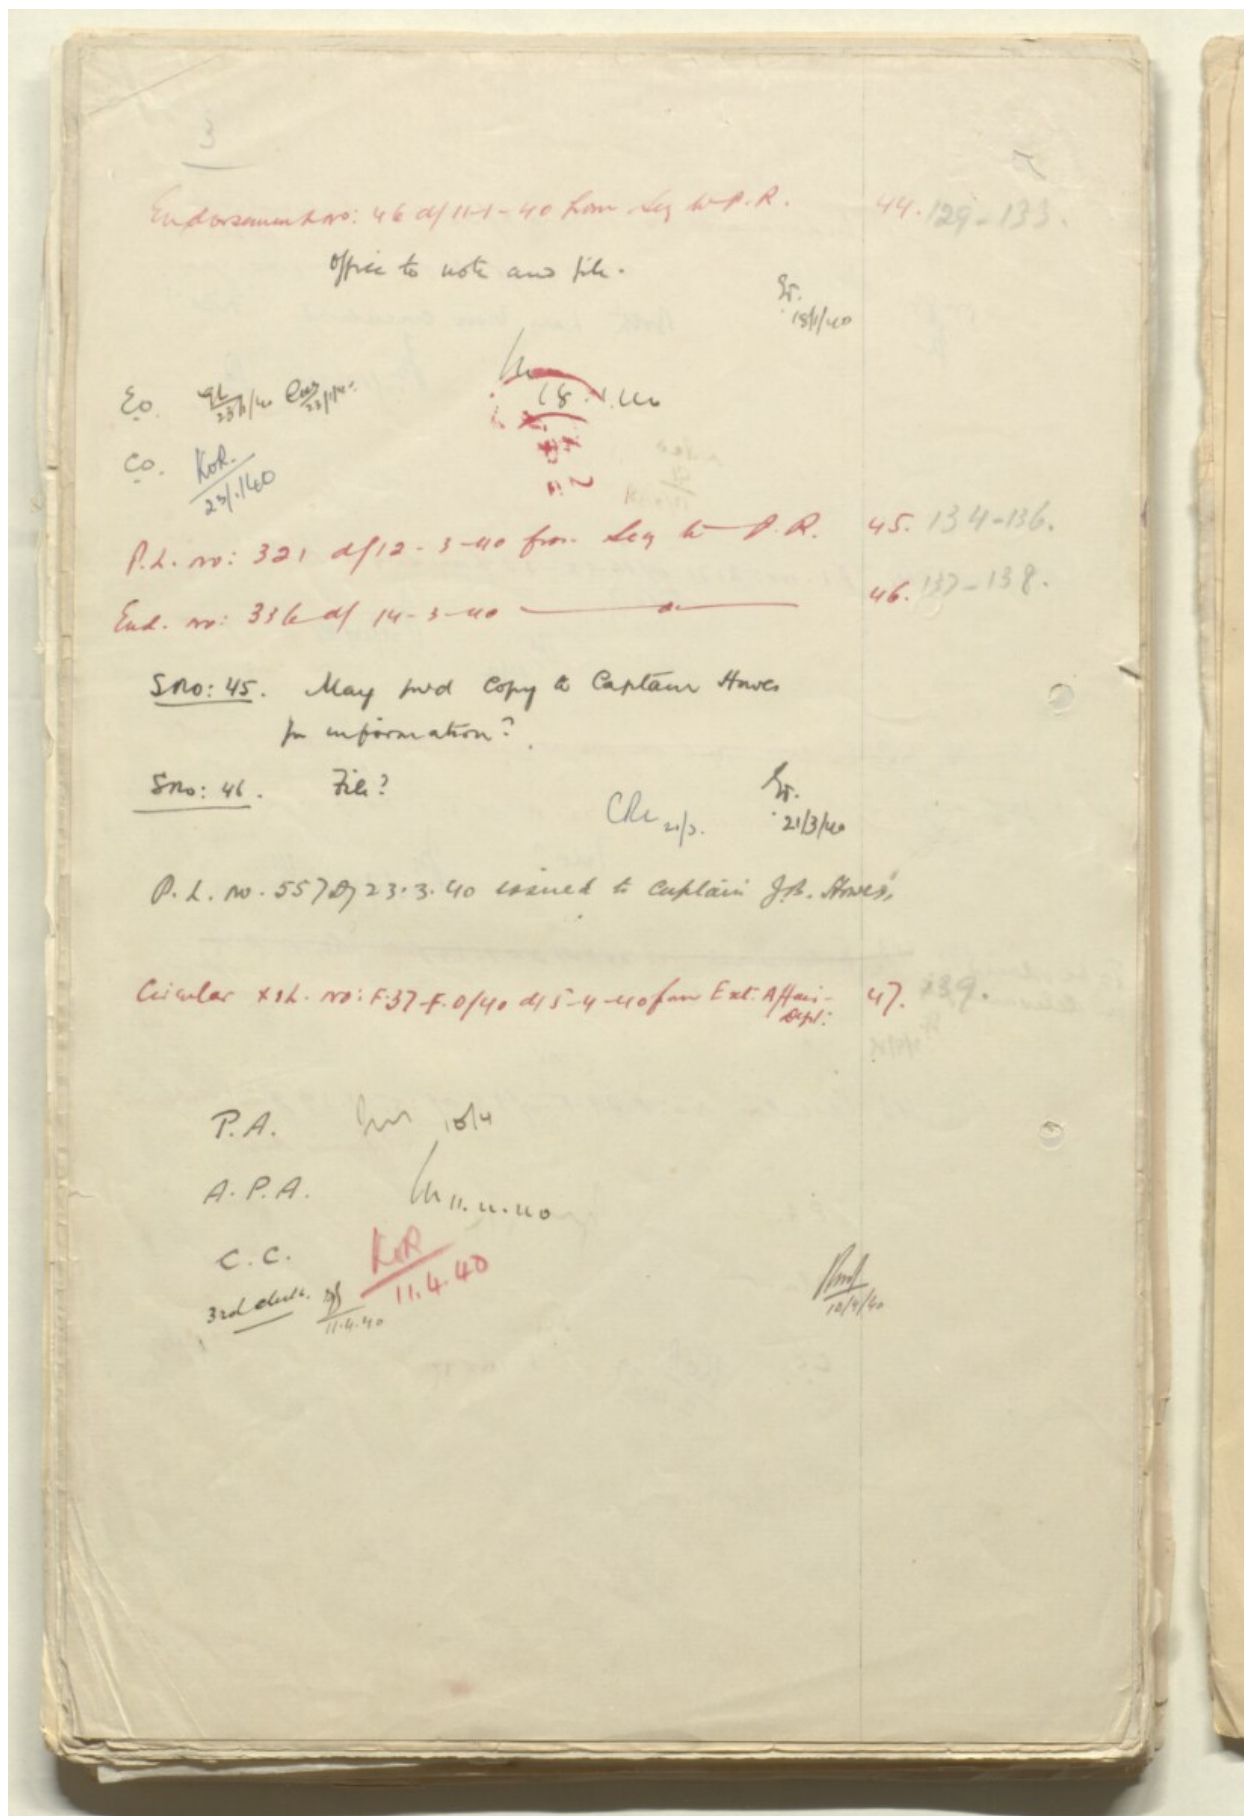 3
Endorsement no: 46 d/ 11-1-40 from Secy to P.R. 44. 129-133.
Office to note and file.
18/1/40
18.1.40
Eo. 23/1/40 23/1/40
Co. KoR.
23/1/40
P.L. no: 321 d/ 12-3-40 from Secy to P.R. 45. 134-136.
End. no: 336 d/ 14-3-40 46. 137-138.
S.No: 45. May fwd copy to Captain Howes
for information?
S.No: 46. File?
21/3. 21/3/40
P.L. no. 557 of 23.3.40 issued to Captain J.B. Howes.
Circular no: F.37-F.O/40 d/ 5-4-40 from Ext: Affairs 47. 139.
Dept:
P.A. 10/4
A.P.A. 11.4.40
C.C. KoR
11.4.40
3rd clerk.
11.4.40
10/4/40